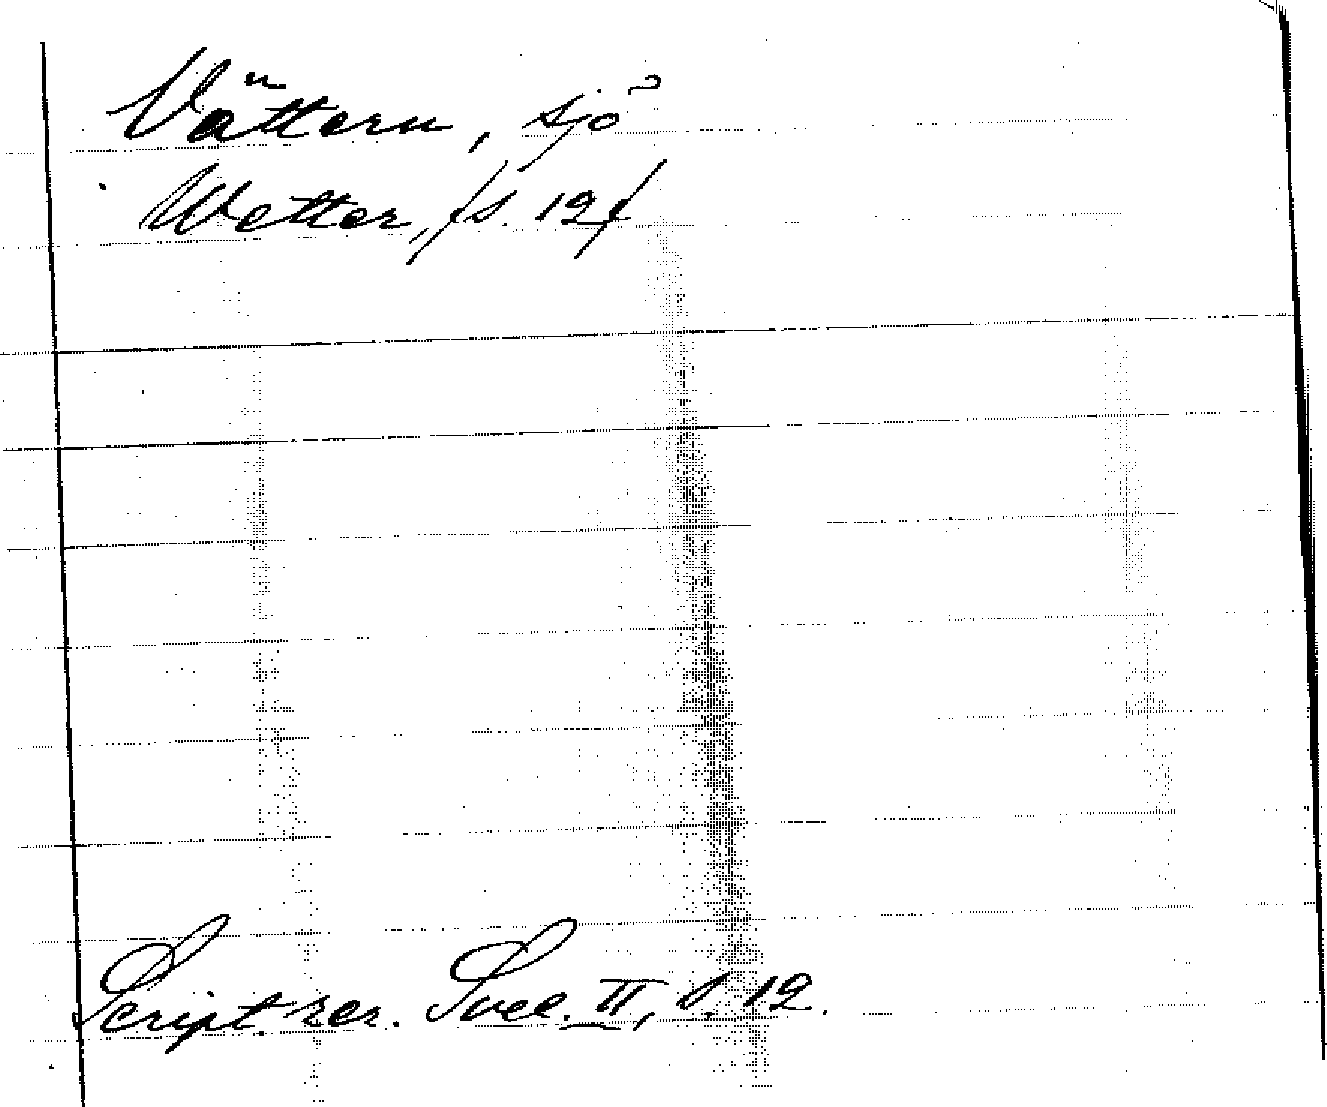 Vättern, sjö
Wetter, /s. 12/
Script. rer. Svec. II, s. 12.